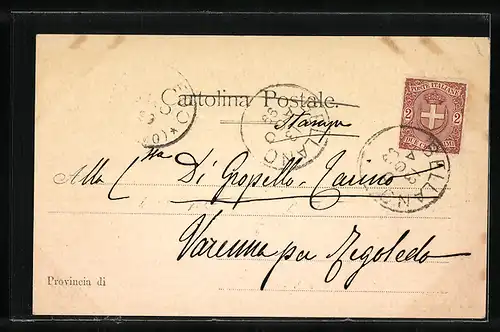 POSTE ITALIANE
2 2
Cartolina Postale.
Stampe
PALLANZA
Alla C.ssa Di Gropello - Tarino
Varenna per Regoledo
Provincia di